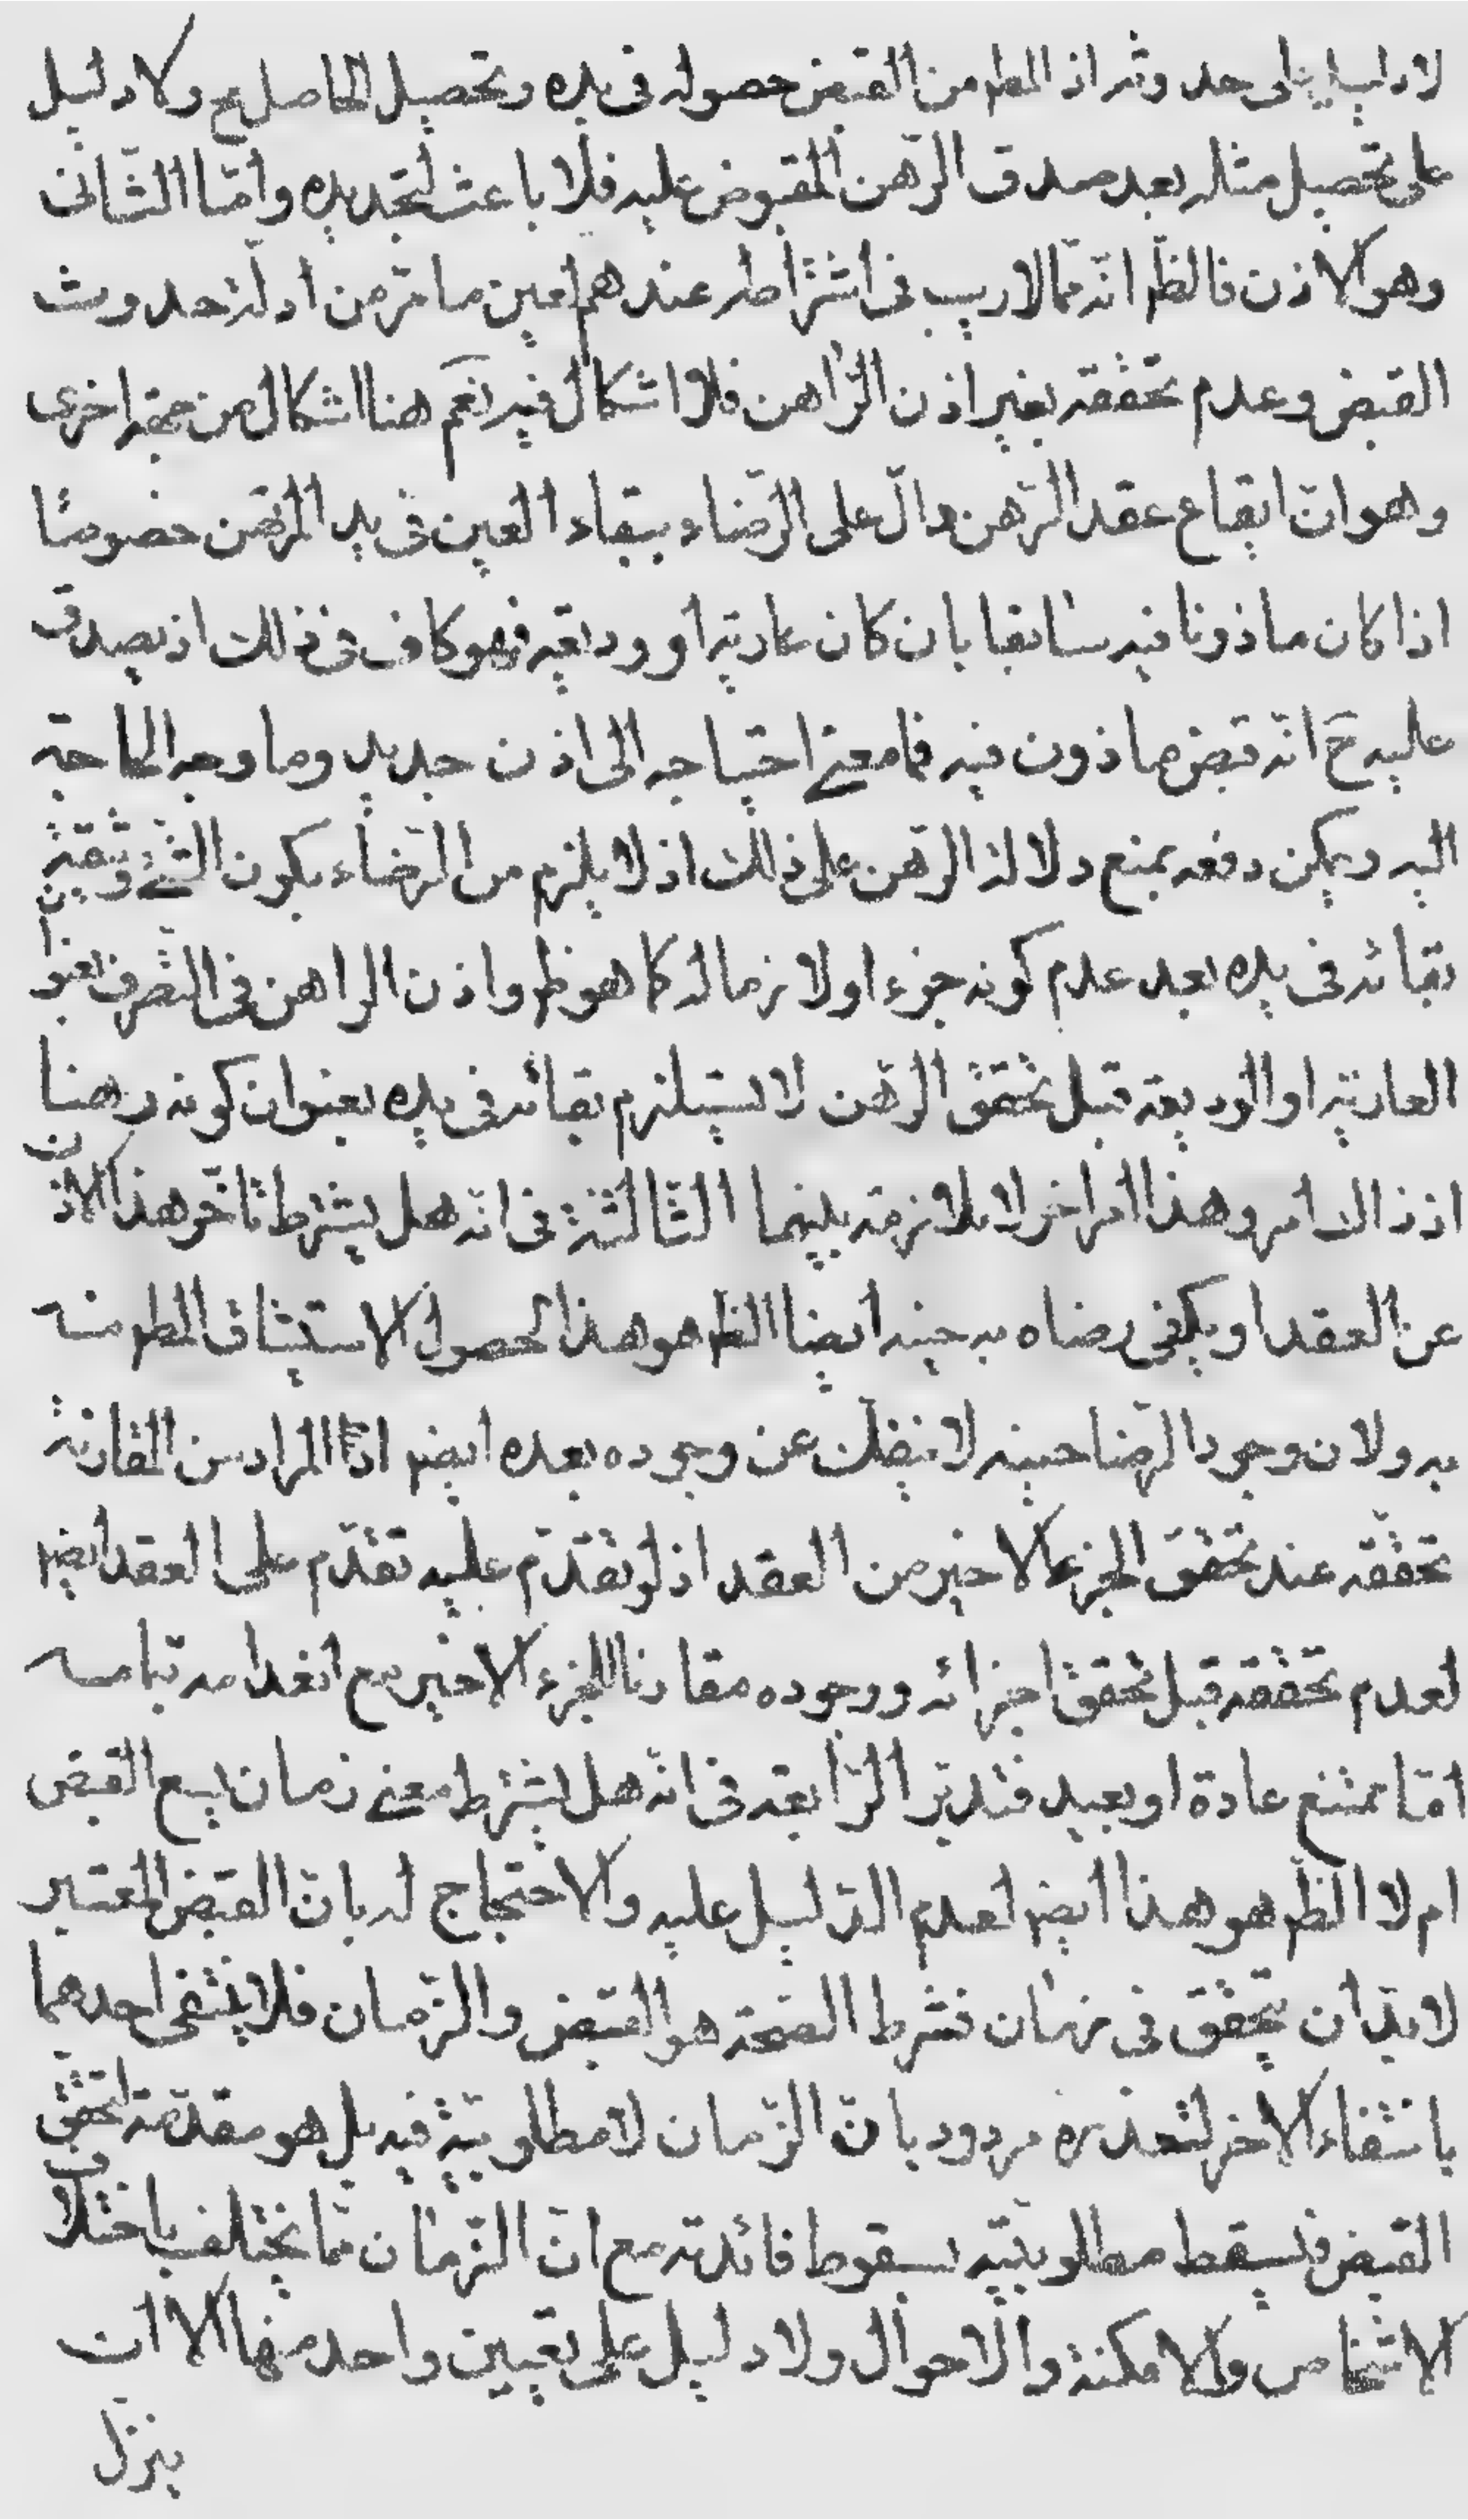 لا دليل على حدوثه اذ المط من القبض حصوله فى يده وتحصيل الحاصل مح ولا دليل
على تحصيل مثله بعد صدق الرّهن المقبوض عليه فلا باعث لتجديده وامّا الثّانى
وهو الاذن فالظ انّه ممّا لا ريب فى اشتراطه عندهم لعين ما مرّ من ادلّة حدوث
القبض وعدم تحققه بغير اذن الرّاهن فلا اشكال فيه نعم هنا اشكال من جهة اخرى
وهو انّ ايقاع عقد الرّهن دالّ على الرّضاء ببقاء العين فى يد المرتهن خصوصًا
اذا كان ماذونا فيه سابقا بان كان عارية او وديعة فهو كاف فى ذلك اذ يصدق
عليه ح انّه قبض ماذون فيه فما معنى احتياجه الى اذن جديد وما وجه الحاجة
اليه ويمكن دفعه بمنع دلالة الرّهن على ذلك اذ لا يلزم من الرّضاء بكون الشّئ وثيقة
بقائه فى يده بعد عدم كونه جزء او لازما له كما هو ظ واذن الراهن فى التّصرف بعنوا
العارية او الوديعة قبل تحقق الرّهن لا يستلزم بقائه فى يده بعنوان كونه رهنا
اذ ذاك امر وهذا امر اخر لا ملازمة بينهما الثّالثة فى انّه هل يشترط تاخّر هذا الاذن
عن العقد او يكفى رضاه به حينه ايضا الظ هو هذا لحصول الاستيثاق المط منه
به ولان وجود الرّضا حينه لا ينفكّ عن وجوده بعده ايض اذ المراد من المقارنة
تحقّقه عند تحقق الجزء الاخير من العقد اذ لو تقدّم عليه تقدّم على العقد ايض
لعدم تحققه قبل تحقق اجزائه ووجوده مقارنا للجزء الاخير مع انعدامه بتمامه
امّا ممتنع عادة او بعيد فتدبّر الرّابعة فى انّه هل يشترط مضى زمان يسع القبض
ام لا الظ هو هذا ايض لعدم الدّليل عليه والاحتجاج له بانّ القبض المعتبر
لا بدّ ان يتحقق فى زمان فشرط الصّحة هو القبض والزّمان فلا ينتفى احدهما
بانتفاء الاخر لتعذره مردود بانّ الزّمان لا مطلوبيّة فيه بل هو مقدّمة لتحقّق
القبض فيسقط مطلوبيّته بسقوط فائدته مع انّ الزّمان ممّا يختلف باختلاف
الاشخاص والامكنة والاحوال ولا دليل على تعيين واحد منها الا ان
ينزل